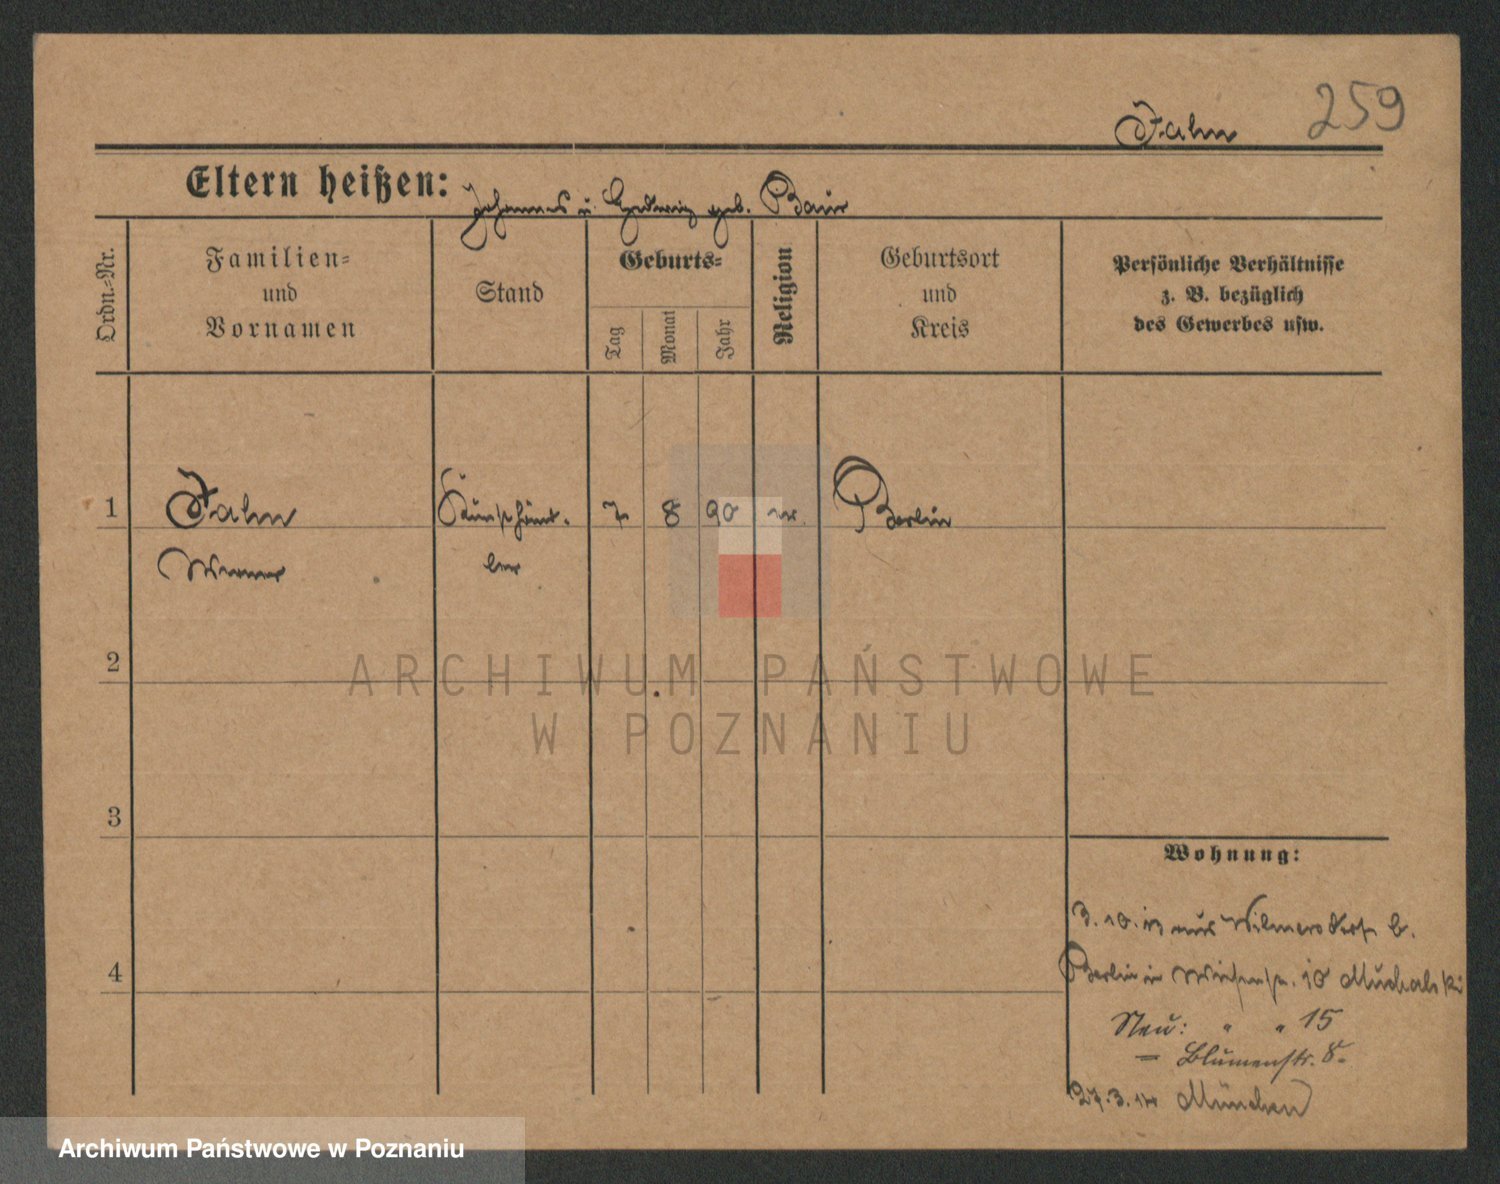 259
Jahn
Eltern heißen: Johannes u. Hedwig geb. Baur
Ordn.-Nr.
Familien-
und
Vornamen
Stand
Geburts-
Tag
Monat
Jahr
Religion
Geburtsort
und
Kreis
Persönliche Verhältnisse
z. B. bezüglich
des Gewerbes usw.
1 Jahn 7 8 90 Berlin
Werner ler
2
ARCHIWUM PAŃSTWOWE
W POZNANIU
3
Wohnung:
3. 10. 13 aus Wilmersdorf b.
4 Berlin in 10 Muchalski
Neu: " " 15
= Blumenstr. 8.
27. 3. 14 München
Archiwum Państwowe w Poznaniu